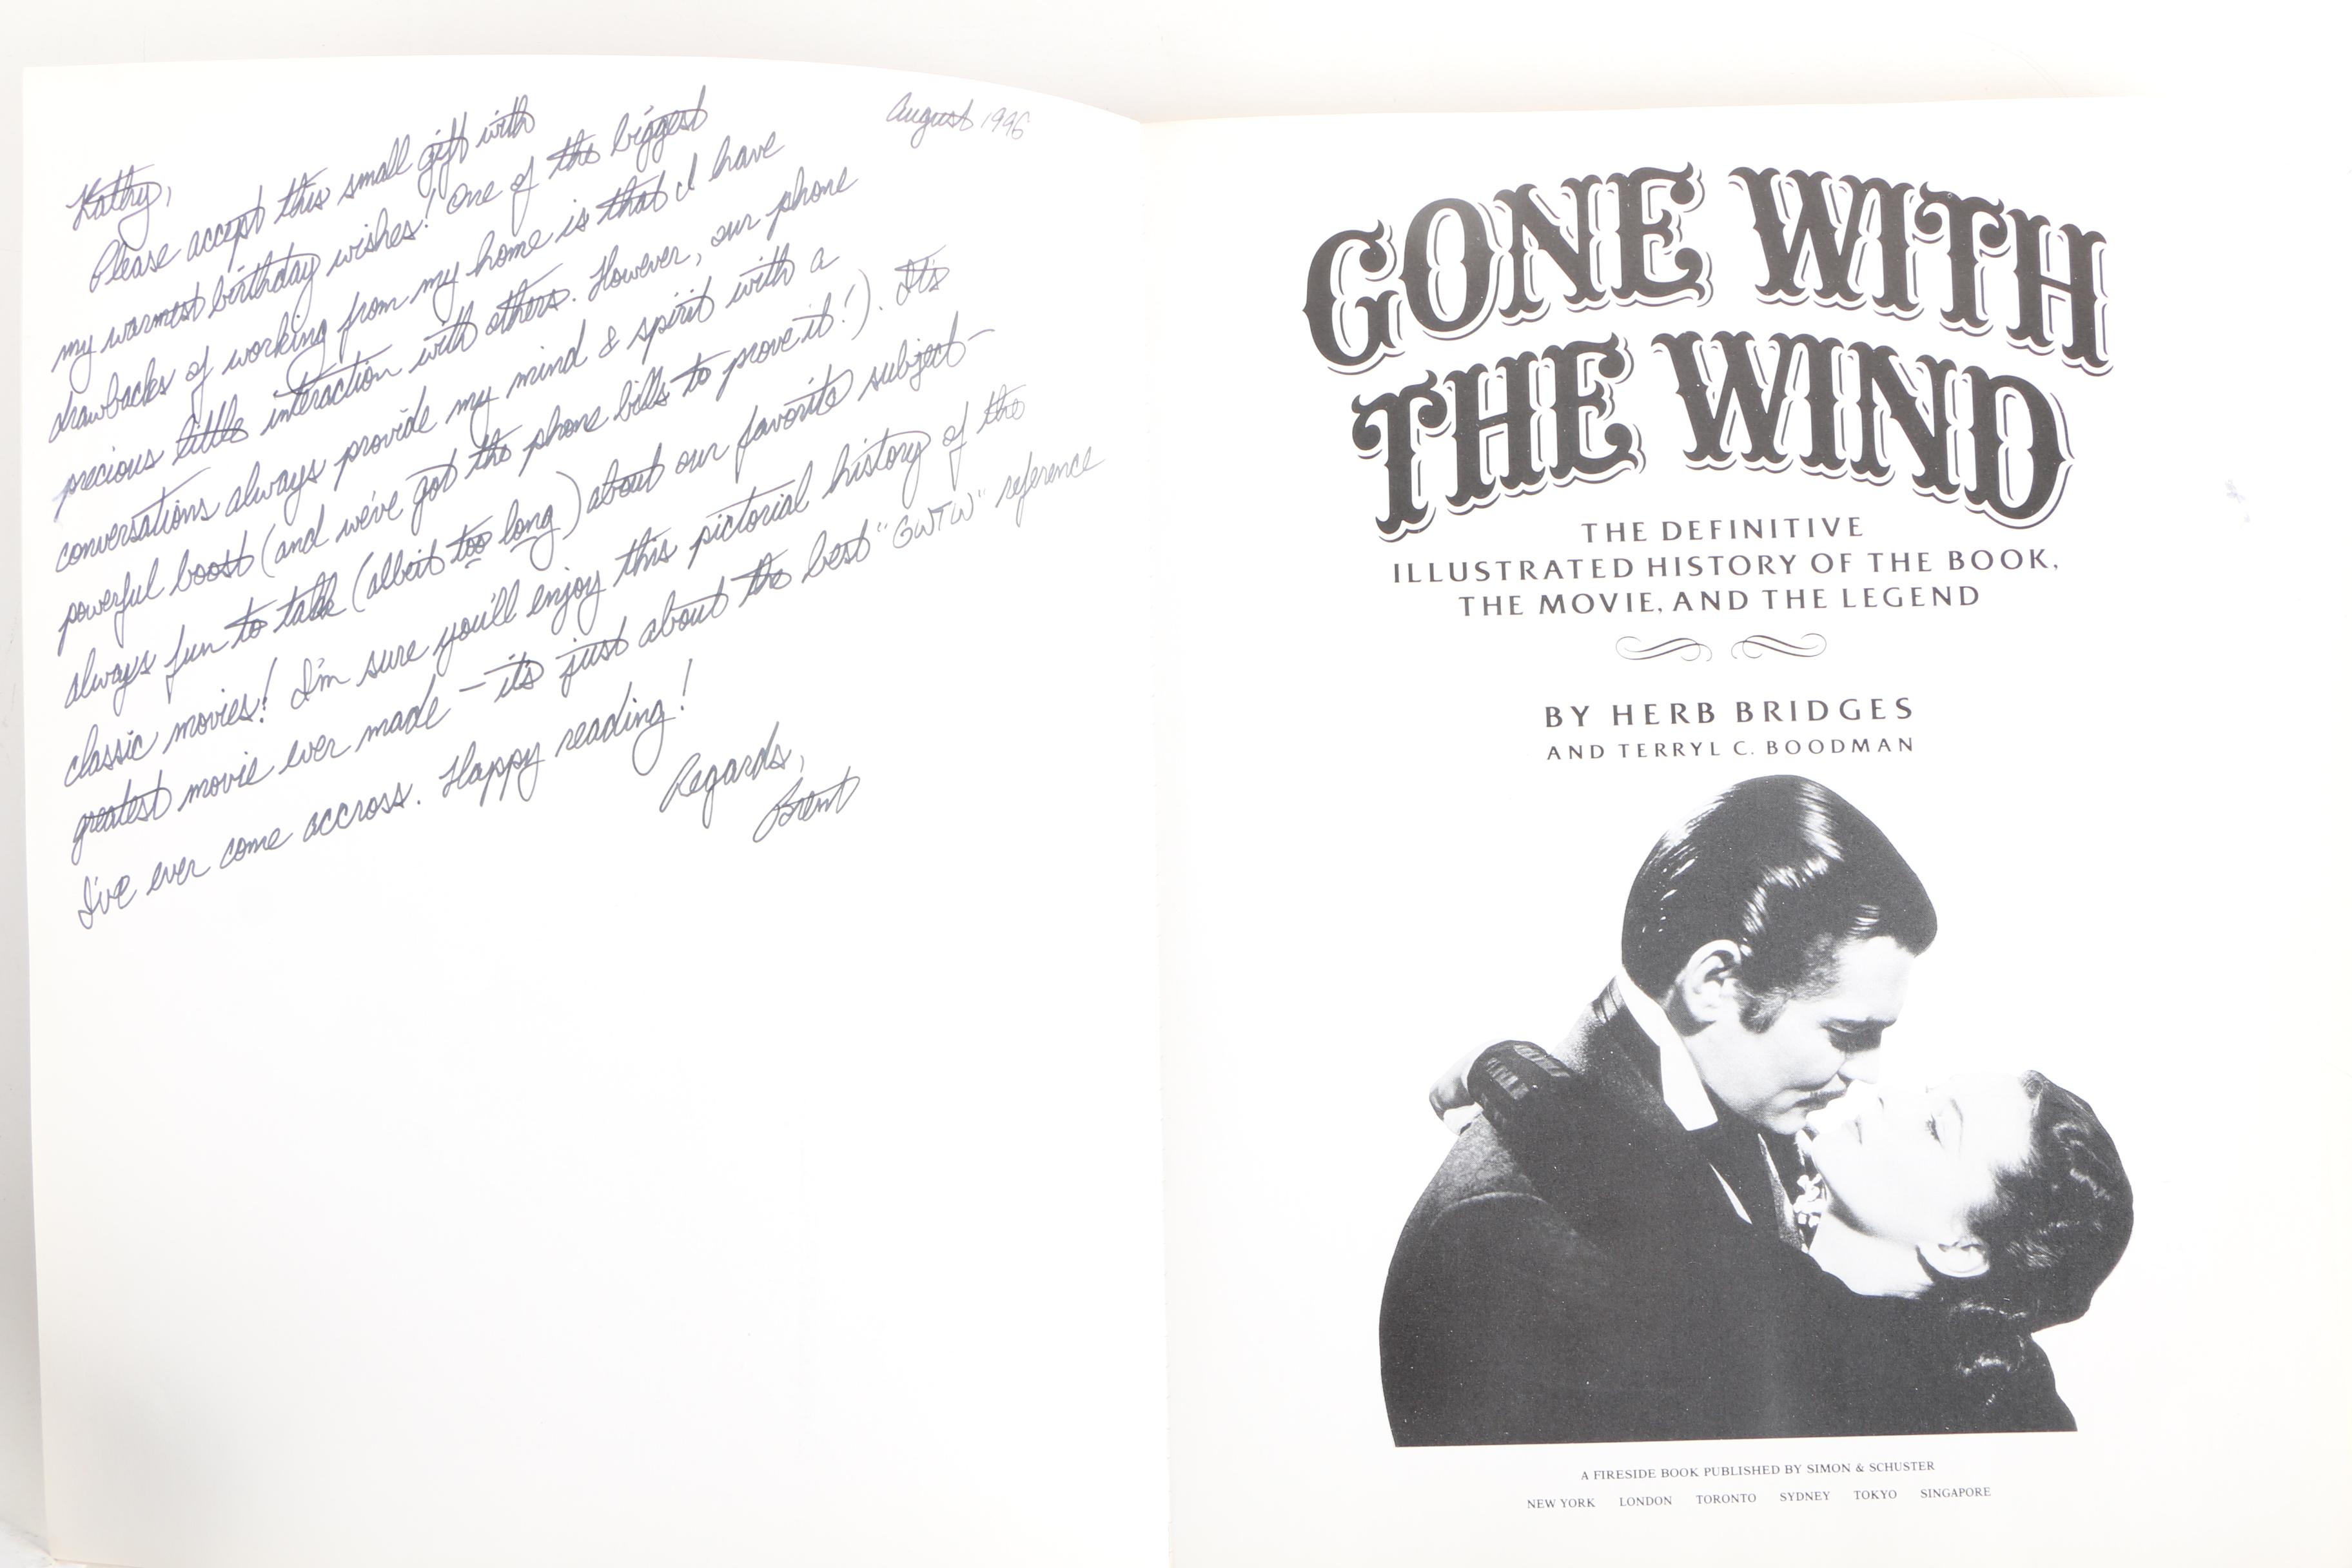 August 1996
Kathy,
Please accept this small gift with
my warmest birthday wishes! One of the biggest
drawbacks of working from my home is that I have
precious little interaction with others. However, our phone
conversations always provide my mind & spirit with a
powerful boost (and we've got the phone bills to prove it!). It's
always fun to talk (albeit too long) about our favorite subject—
classic movies! I'm sure you'll enjoy this pictorial history of the
greatest movie ever made — it's just about the best "GWTW" reference
I've ever come accross. Happy reading!
Regards,
Brent
GONE WITH
THE WIND
THE DEFINITIVE
ILLUSTRATED HISTORY OF THE BOOK,
THE MOVIE, AND THE LEGEND
BY HERB BRIDGES
AND TERRYL C. BOODMAN
A FIRESIDE BOOK PUBLISHED BY SIMON & SCHUSTER
NEW YORK LONDON TORONTO SYDNEY TOKYO SINGAPORE